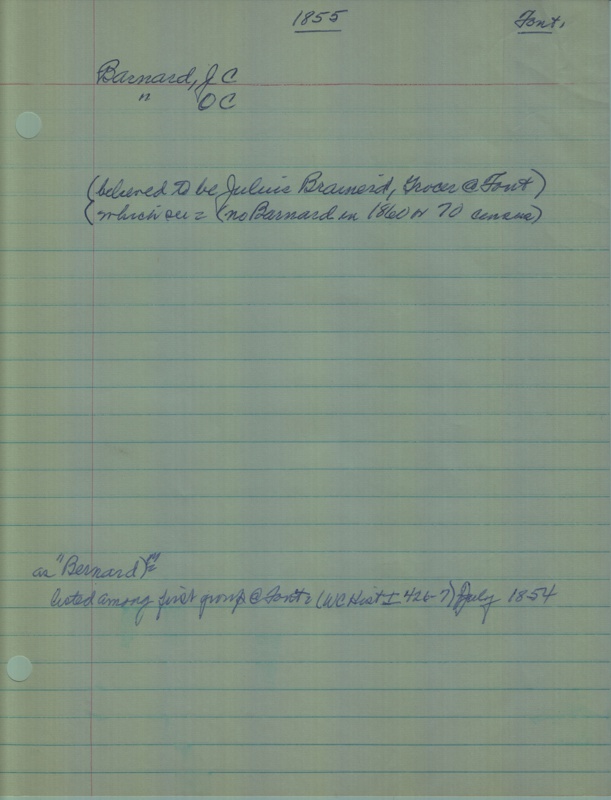 1855 Font.
Barnard, J C
" O C
(believed to be Julius Brainerd, Grocer @ Font)
(which see = (no Barnard in 1860 or 70 census)
as "Bernard)"=
listed among first group @ Font= (WC Hist I 426-7) July 1854